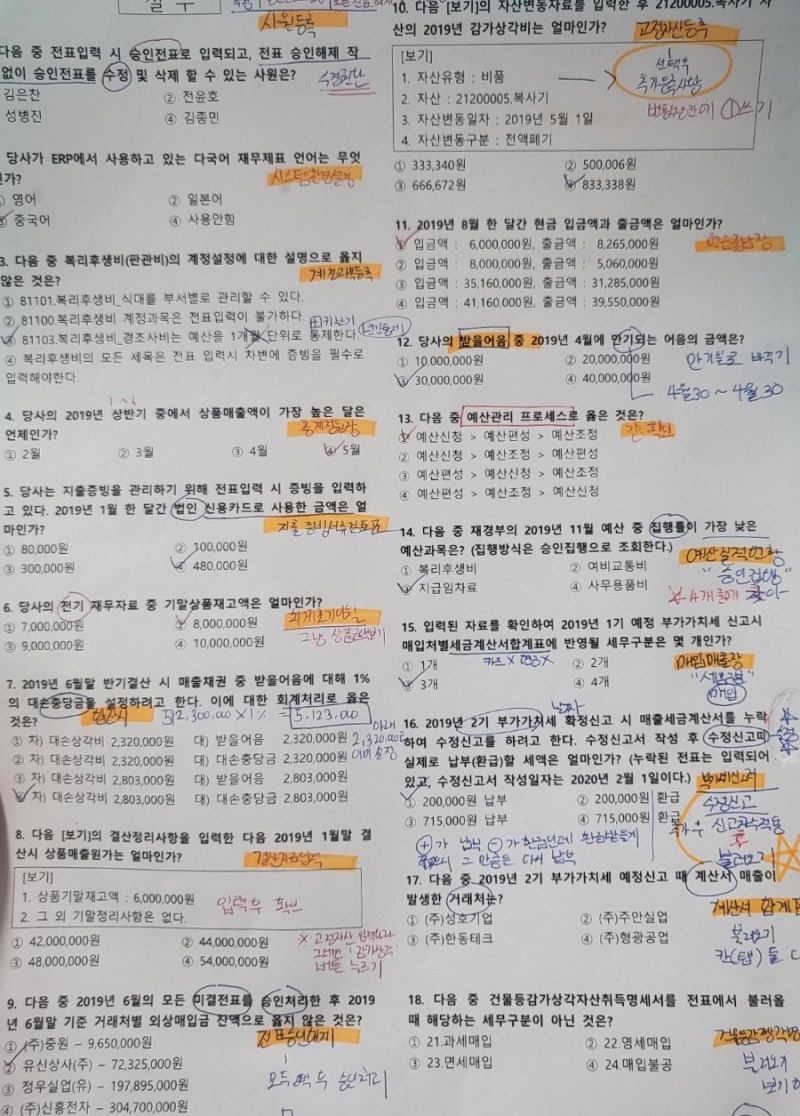 실무
사원등록
다음 중 전표입력 시 승인전표로 입력되고, 전표 승인해제 작
없이 승인전표를 수정 및 삭제 할 수 있는 사원은?
수정권한
김은찬 ② 전윤호
성병진 ④ 김종민
당사가 ERP에서 사용하고 있는 다국어 재무제표 언어는 무엇
인가?
시스템환경설정
영어 ② 일본어
중국어 ④ 사용안함
3. 다음 중 복리후생비(판관비)의 계정설정에 대한 설명으로 옳지
않은 것은?
계정과목등록
① 81101.복리후생비_식대를 부서별로 관리할 수 있다.
② 81100.복리후생비 계정과목은 전표입력이 불가하다.
③ 81103.복리후생비_경조사비는 예산을 1개월 단위로 통제한다.
④ 복리후생비의 모든 세목은 전표 입력시 차변에 증빙을 필수로
입력해야한다.
4. 당사의 2019년 상반기 중에서 상품매출액이 가장 높은 달은
언제인가?
총계정원장
① 2월 ② 3월 ③ 4월 ④ 5월
5. 당사는 지출증빙을 관리하기 위해 전표입력 시 증빙을 입력하
고 있다. 2019년 1월 한 달간 법인 신용카드로 사용한 금액은 얼
마인가?
지출증빙서류검토표
① 80,000원 ② 100,000원
③ 300,000원 ④ 480,000원
6. 당사의 전기 재무자료 중 기말상품재고액은 얼마인가?
① 7,000,000원 ② 8,000,000원
③ 9,000,000원 ④ 10,000,000원
그냥 상품금액보기
7. 2019년 6월말 반기결산 시 매출채권 중 받을어음에 대해 1%
의 대손충당금을 설정하려고 한다. 이에 대한 회계처리로 옳은
것은?
합잔시 512,300,000 × 1% = 5,123,000
① 차) 대손상각비 2,320,000원 대) 받을어음 2,320,000원
② 차) 대손상각비 2,320,000원 대) 대손충당금 2,320,000원
③ 차) 대손상각비 2,803,000원 대) 받을어음 2,803,000원
④ 차) 대손상각비 2,803,000원 대) 대손충당금 2,803,000원
8. 다음 [보기]의 결산정리사항을 입력한 다음 2019년 1월말 결
산시 상품매출원가는 얼마인가?
결산자료입력
[보기]
1. 상품기말재고액 : 6,000,000원
2. 그 외 기말정리사항은 없다.
입력 후 확인
① 42,000,000원 ② 44,000,000원
③ 48,000,000원 ④ 54,000,000원
버튼 누르기
9. 다음 중 2019년 6월의 모든 미결전표를 승인처리한 후 2019
년 6월말 기준 거래처별 외상매입금 잔액으로 옳지 않은 것은?
전표승인해제
① (주)중원 - 9,650,000원
② 유신상사(주) - 72,325,000원
③ 정우실업(유) - 197,895,000원
④ (주)신흥전자 - 304,700,000원
모두 선택 후 승인처리
10. 다음 [보기]의 자산변동자료를 입력한 후 21200005.복사기 자
산의 2019년 감가상각비는 얼마인가?
고정자산등록
[보기]
1. 자산유형 : 비품
2. 자산 : 21200005.복사기
3. 자산변동일자 : 2019년 5월 1일
4. 자산변동구분 : 전액폐기
선택후
추가등록사항
① 333,340원 ② 500,006원
③ 666,672원 ④ 833,338원
11. 2019년 8월 한 달간 현금 입금액과 출금액은 얼마인가?
현금출납장
① 입금액 : 6,000,000원, 출금액 : 8,265,000원
② 입금액 : 8,000,000원, 출금액 : 5,060,000원
③ 입금액 : 35,160,000원, 출금액 : 31,285,000원
④ 입금액 : 41,160,000원, 출금액 : 39,550,000원
12. 당사의 받을어음 중 2019년 4월에 만기되는 어음의 금액은?
① 10,000,000원 ② 20,000,000원
③ 30,000,000원 ④ 40,000,000원
만기일로 바꾸기
4월30 ~ 4월30
13. 다음 중 예산관리 프로세스로 옳은 것은?
① 예산신청 > 예산편성 > 예산조정
② 예산신청 > 예산조정 > 예산편성
③ 예산편성 > 예산신청 > 예산조정
④ 예산편성 > 예산조정 > 예산신청
14. 다음 중 재경부의 2019년 11월 예산 중 집행률이 가장 낮은
예산과목은? (집행방식은 승인집행으로 조회한다.)
① 복리후생비 ② 여비교통비
③ 지급임차료 ④ 사무용품비
예산실적현황
"승인집행"
15. 입력된 자료를 확인하여 2019년 1기 예정 부가가치세 신고시
매입처별세금계산서합계표에 반영될 세무구분은 몇 개인가?
카드X 현금X
① 1개 ② 2개
③ 3개 ④ 4개
매입매출장
"세무구분"
매입
날짜
16. 2019년 2기 부가가치세 확정신고 시 매출세금계산서를 누락
하여 수정신고를 하려고 한다. 수정신고서 작성 후 수정신고때
실제로 납부(환급)할 세액은 얼마인가? (누락된 전표는 입력되어
있고, 수정신고서 작성일자는 2020년 2월 1일이다.)
부가세신고서
① 200,000원 납부 ② 200,000원 환급
③ 715,000원 납부 ④ 715,000원 환급
수정신고
불러오기
17. 다음 중 2019년 2기 부가가치세 예정신고 때 계산서 매출이
발생한 거래처는?
① (주)성호기업 ② (주)주안실업
③ (주)한동테크 ④ (주)형광공업
계산서 합계표
불러오기
18. 다음 중 건물등감가상각자산취득명세서를 전표에서 불러올
때 해당하는 세무구분이 아닌 것은?
① 21.과세매입 ② 22.영세매입
③ 23.면세매입 ④ 24.매입불공
불러오기